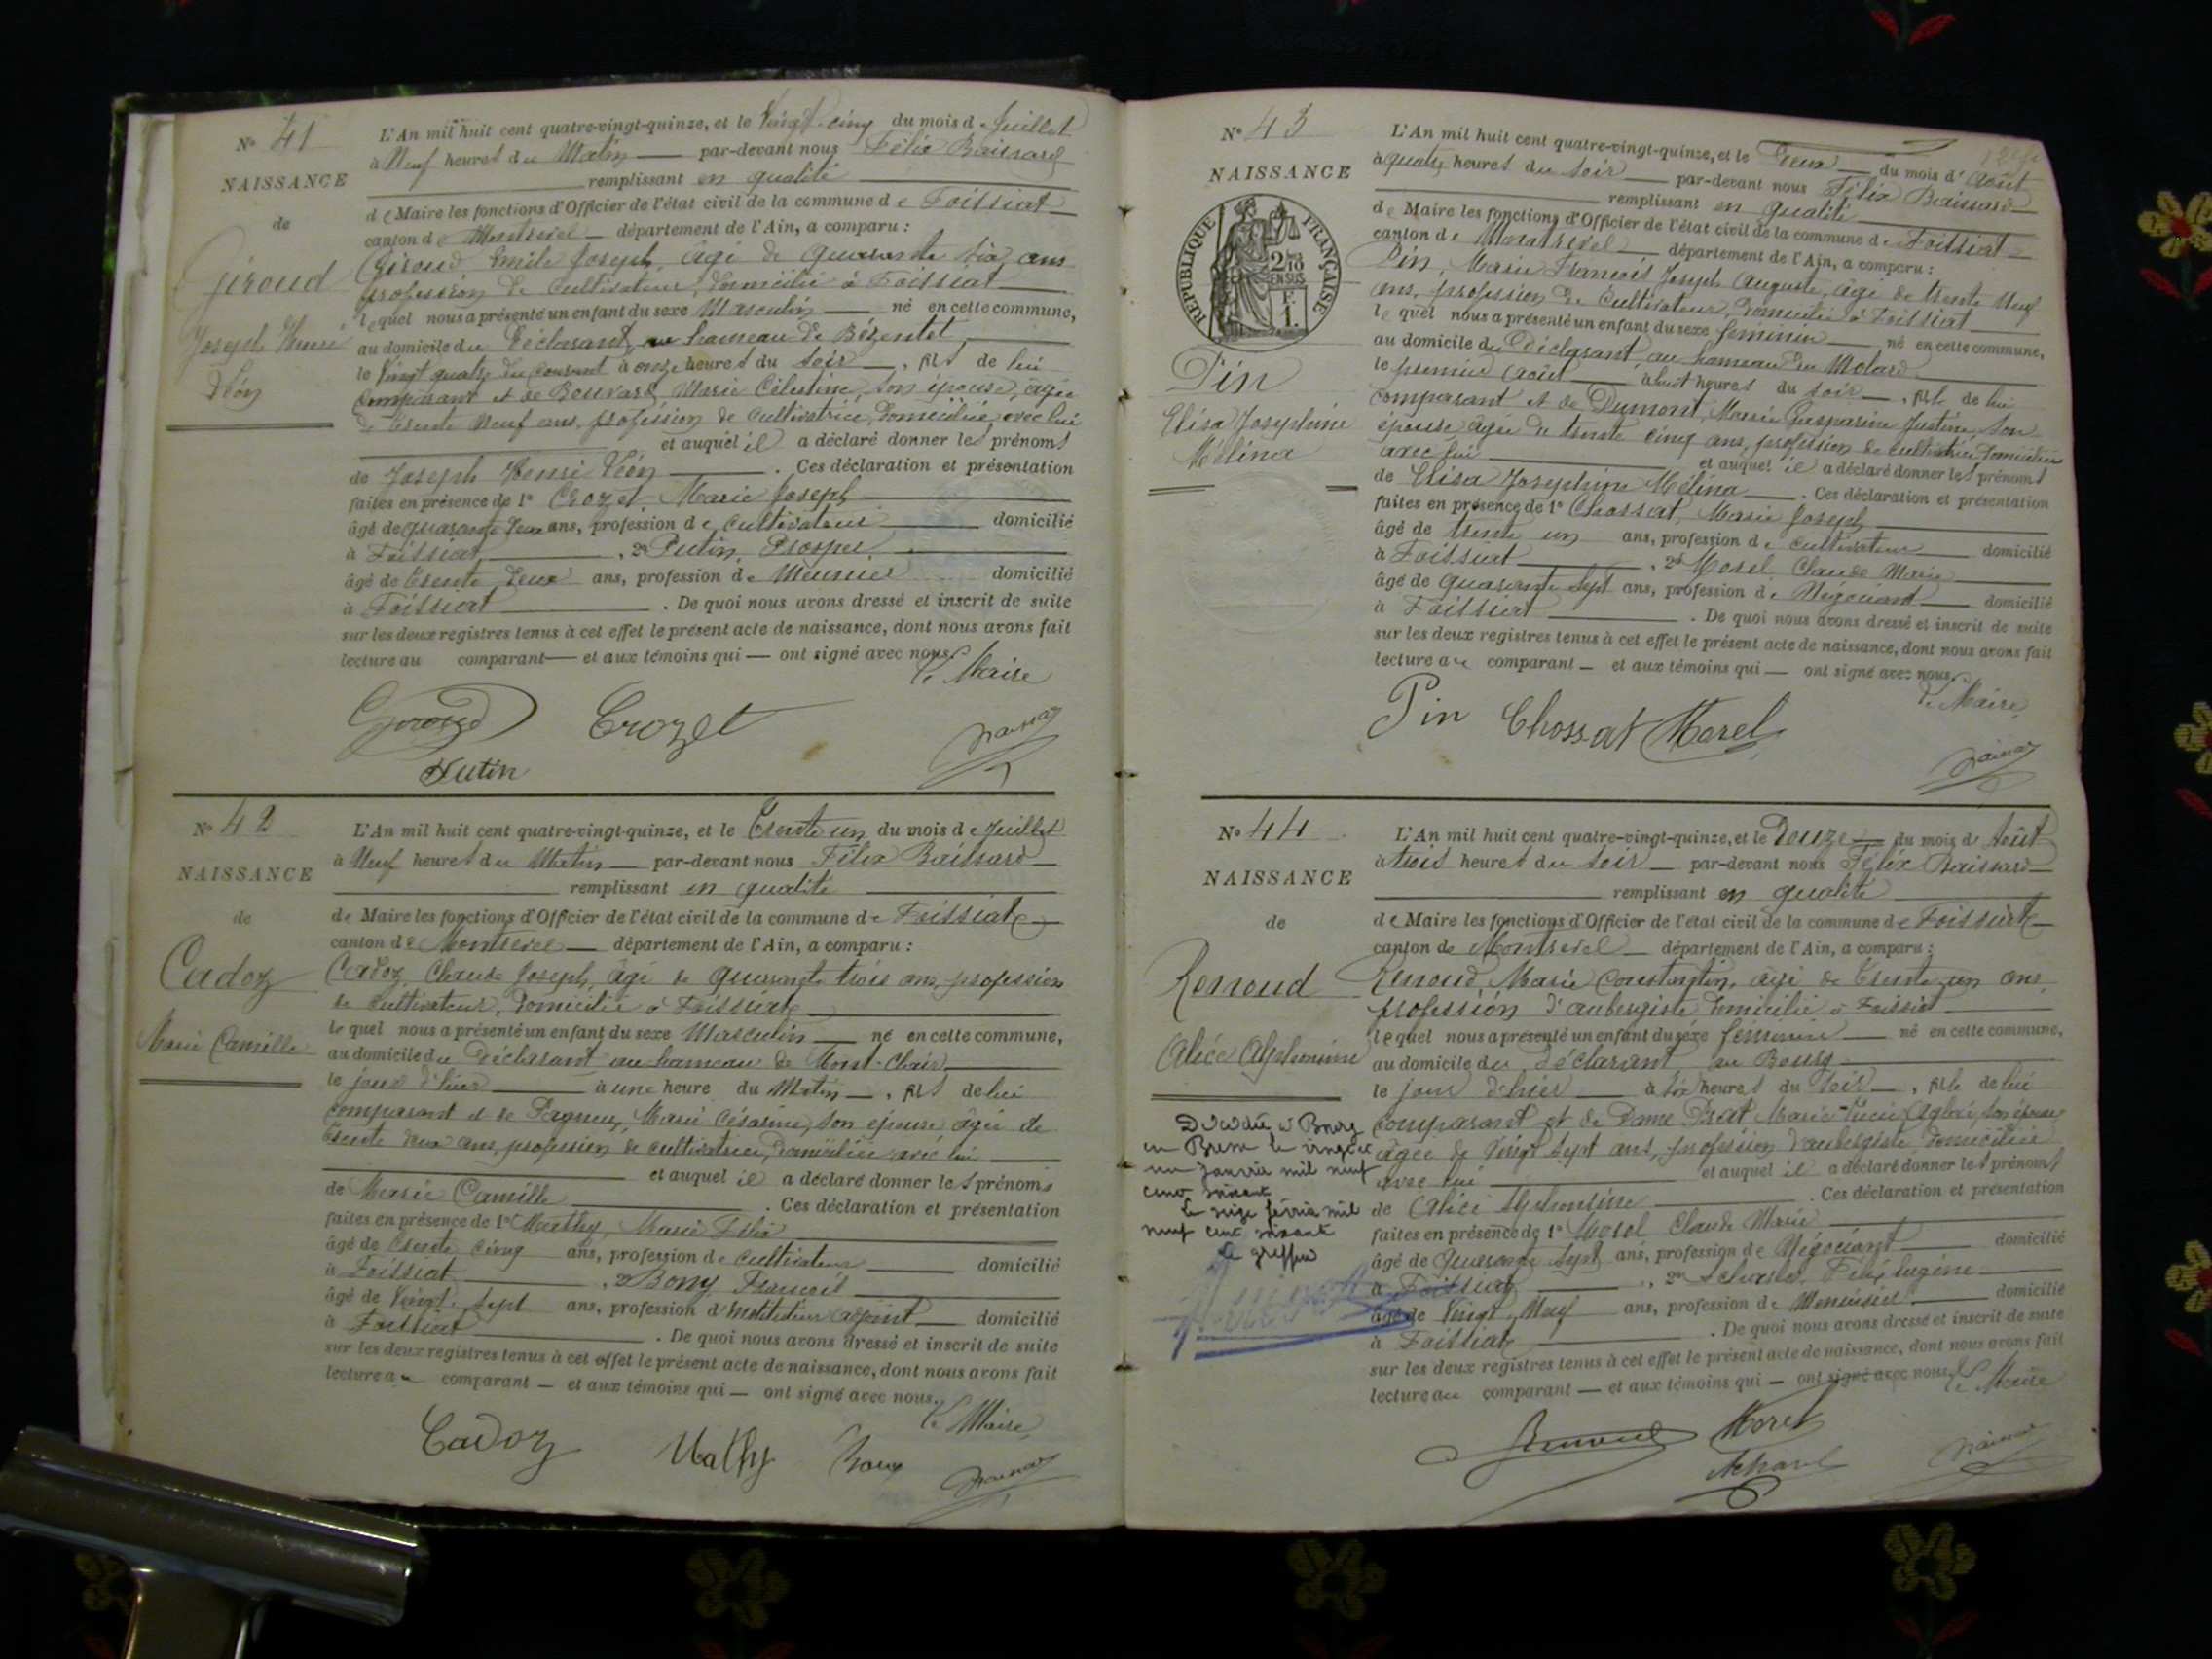 N° 41
NAISSANCE
de
Giroud
Joseph Henri
Léon
L'An mil huit cent quatre-vingt-quinze, et le Vingt-cinq du mois de Juillet
à Neuf heures du Matin par-devant nous Félix Baissard
remplissant en qualité
de Maire les fonctions d'Officier de l'état civil de la commune de Foissiat
canton de Montrevel département de l'Ain, a comparu :
Giroud Emile Joseph, âgé de quarante six ans
profession de cultivateur, domicilié à Foissiat
lequel nous a présenté un enfant du sexe Masculin né en cette commune,
au domicile du Déclarant, au hameau de Bézentet
le Vingt quatre du courant à onze heures du soir, fils de lui
comparant et de Bouvard, Marie Célestine, son épouse, âgée
de trente neuf ans, profession de cultivatrice, domiciliée avec lui
et auquel il a déclaré donner les prénoms
de Joseph Henri Léon. Ces déclaration et présentation
faites en présence de 1° Crozet, Marie Joseph
âgé de quarante deux ans, profession de cultivateur domicilié
à Foissiat, 2° Putin, Prosper
âgé de trente deux ans, profession de Meunier domicilié
à Foissiat. De quoi nous avons dressé et inscrit de suite
sur les deux registres tenus à cet effet le présent acte de naissance, dont nous avons fait
lecture au comparant et aux témoins qui ont signé avec nous.
Le Maire
Giroud Crozet
Putin
N° 42
NAISSANCE
de
Cadoz
Marie Camille
L'An mil huit cent quatre-vingt-quinze, et le Trente un du mois de Juillet
à Neuf heures du Matin par-devant nous Félix Baissard
remplissant en qualité
de Maire les fonctions d'Officier de l'état civil de la commune de Foissiat
canton de Montrevel département de l'Ain, a comparu :
Cadoz, Claude Joseph, âgé de quarante trois ans, profession
de cultivateur, domicilié à Foissiat
lequel nous a présenté un enfant du sexe Masculin né en cette commune,
au domicile du Déclarant au hameau de Mont-Clair
le jour d'hier à une heure du Matin, fils de lui
comparant et de Pagneux, Marie Césarine, son épouse âgée de
trente deux ans, profession de cultivatrice, domiciliée avec lui
et auquel il a déclaré donner les prénoms
de Marie Camille. Ces déclaration et présentation
faites en présence de 1° Mathy, Marie Félix
âgé de trente cinq ans, profession de cultivateur domicilié
à Foissiat, 2° Bony François
âgé de Vingt-sept ans, profession d'Instituteur adjoint domicilié
à Foissiat. De quoi nous avons dressé et inscrit de suite
sur les deux registres tenus à cet effet le présent acte de naissance, dont nous avons fait
lecture au comparant et aux témoins qui ont signé avec nous.
Le Maire
Cadoz Mathy Bony
N° 43
NAISSANCE
REPUBLIQUE FRANÇAISE
2/10 EN SUS
1 F.
Pin
Elisa Joséphine
Mélina
L'An mil huit cent quatre-vingt-quinze, et le Deux du mois d'Août
à quatre heures du soir par-devant nous Félix Baissard
remplissant en qualité
de Maire les fonctions d'Officier de l'état civil de la commune de Foissiat
canton de Montrevel département de l'Ain, a comparu :
Pin, Marie François Joseph Auguste, âgé de trente neuf
ans, profession de cultivateur, domicilié à Foissiat
lequel nous a présenté un enfant du sexe féminin né en cette commune,
au domicile du Déclarant, au hameau du Molard
le premier août à huit heures du soir, fille de lui
comparant et de Dumont, Marie Gasparine Justine, son
épouse âgée de trente cinq ans, profession de cultivatrice domiciliée
avec lui et auquel il a déclaré donner les prénoms
de Elisa Joséphine Mélina. Ces déclaration et présentation
faites en présence de 1° Chossat, Marie Joseph
âgé de trente un ans, profession de cultivateur domicilié
à Foissiat, 2° Morel Claude Marie
âgé de quarante sept ans, profession de Négociant domicilié
à Foissiat. De quoi nous avons dressé et inscrit de suite
sur les deux registres tenus à cet effet le présent acte de naissance, dont nous avons fait
lecture au comparant et aux témoins qui ont signé avec nous.
Le Maire
Pin Chossat Morel
N° 44
NAISSANCE
de
Renoud
Alice Alphonsine
Décédée à Bourg
en Bresse le vingt et
un janvier mil neuf
cent soixante
Le seize février mil
neuf cent soixante
Le greffier
L'An mil huit cent quatre-vingt-quinze, et le Douze du mois d'Août
à trois heures du soir par-devant nous Félix Baissard
remplissant en qualité
de Maire les fonctions d'Officier de l'état civil de la commune de Foissiat
canton de Montrevel département de l'Ain, a comparu :
Renoud, Marie Constantin, âgé de trente un ans
profession d'aubergiste domicilié à Foissiat
lequel nous a présenté un enfant du sexe féminin né en cette commune,
au domicile du déclarant, au Bourg
le jour d'hier à six heures du soir, fille de lui
comparant et de Dame Marie son épouse
âgée de vingt sept ans, profession d'aubergiste domiciliée
avec lui et auquel il a déclaré donner les prénoms
de Alice Alphonsine. Ces déclaration et présentation
faites en présence de 1° Morel Claude Marie
âgé de quarante sept ans, profession de Négociant domicilié
à Foissiat, 2° Félix Eugène
âgé de Vingt Neuf ans, profession de Menuisier domicilié
à Foissiat. De quoi nous avons dressé et inscrit de suite
sur les deux registres tenus à cet effet le présent acte de naissance, dont nous avons fait
lecture au comparant et aux témoins qui ont signé avec nous.
Le Maire
Renoud Morel